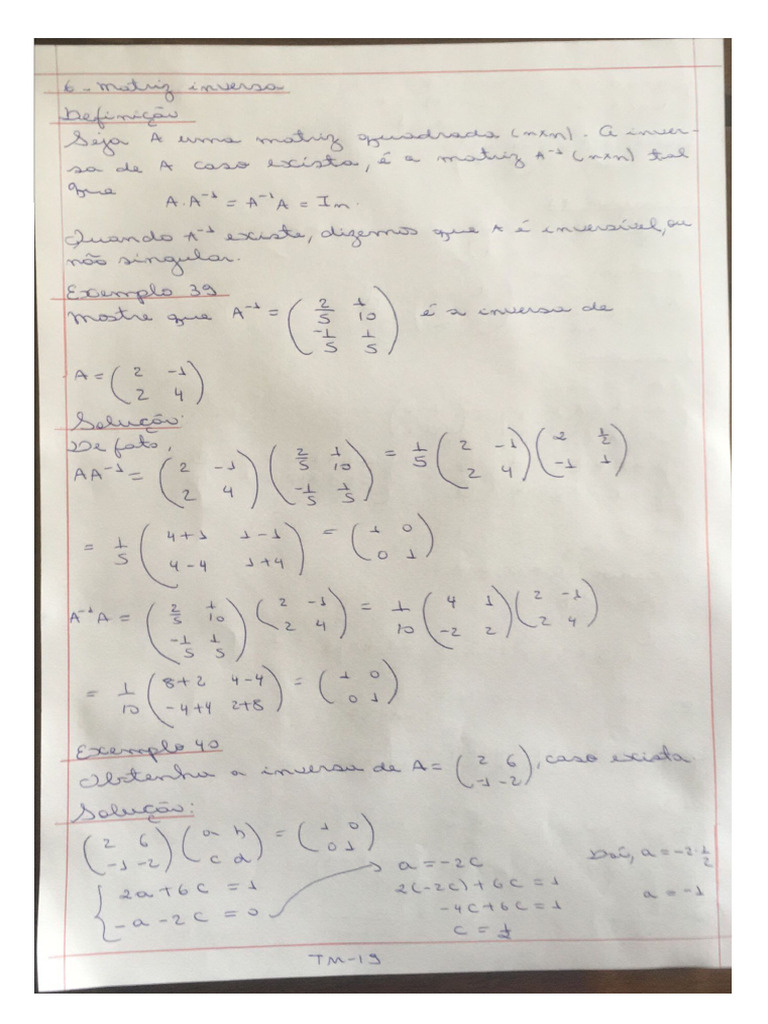 6 - Matriz inversa
Definição
Seja A uma matriz quadrada (n×n). A inver-
sa de A caso exista, é a matriz A⁻¹ (n×n) tal
que A.A⁻¹ = A⁻¹A = In.
Quando A⁻¹ existe, dizemos que A é inversível, ou
não singular.
Exemplo 39
Mostre que A⁻¹ = ( 2/5 1/10 ; -1/5 1/5 ) é a inversa de
A = ( 2 -1 ; 2 4 )
Solução:
De fato,
AA⁻¹ = ( 2 -1 ; 2 4 ) ( 2/5 1/10 ; -1/5 1/5 ) = 1/5 ( 2 -1 ; 2 4 ) ( 2 1/2 ; -1 1 )
= 1/5 ( 4+1 1-1 ; 4-4 1+4 ) = ( 1 0 ; 0 1 )
A⁻¹A = ( 2/5 1/10 ; -1/5 1/5 ) ( 2 -1 ; 2 4 ) = 1/10 ( 4 1 ; -2 2 ) ( 2 -1 ; 2 4 )
= 1/10 ( 8+2 4-4 ; -4+4 2+8 ) = ( 1 0 ; 0 1 )
Exemplo 40
Obtenha a inversa de A = ( 2 6 ; -1 -2 ), caso exista.
Solução:
( 2 6 ; -1 -2 ) ( a b ; c d ) = ( 1 0 ; 0 1 )
{ 2a + 6c = 1
-a - 2c = 0
a = -2c
2(-2c) + 6c = 1
-4c + 6c = 1
c = 1/2
Daí, a = -2·1/2
a = -1
TM-19